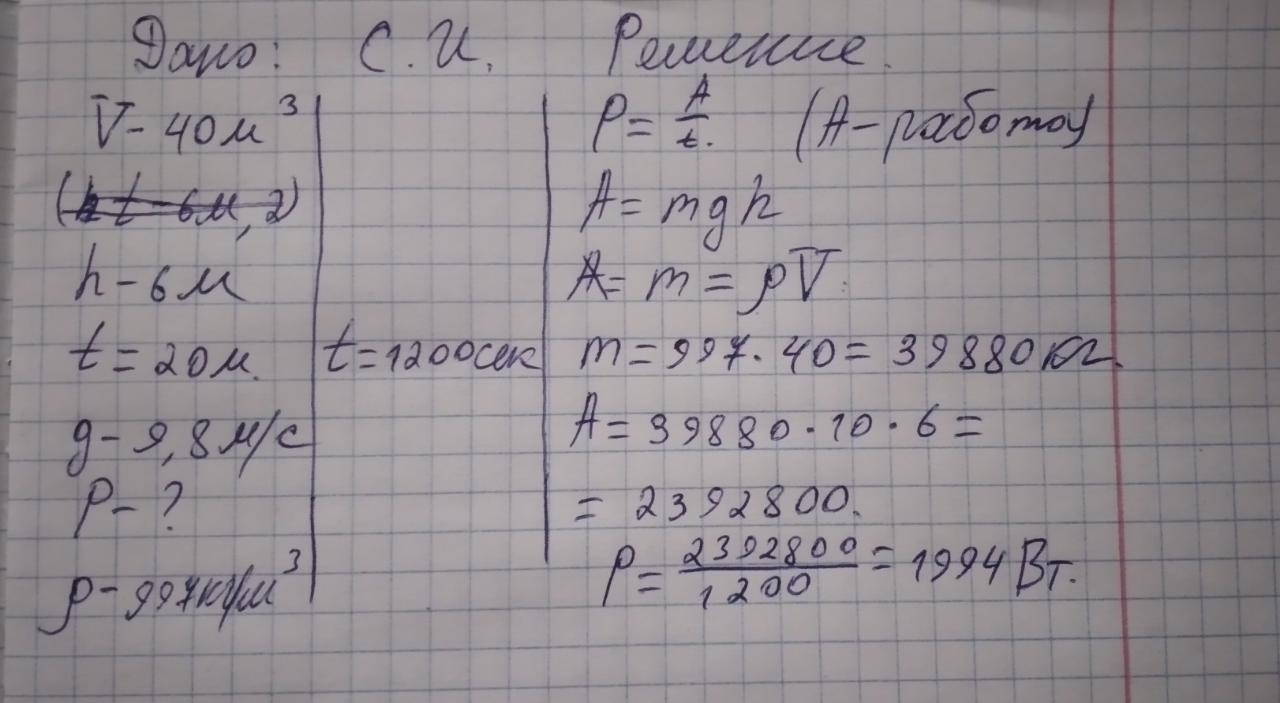 Дано: С.И. Решение.
V- 40м³
(h t - 6м, 2)
h - 6м
t = 20м.
g - 9,8м/с
P - ?
ρ - 997кг/м³
t = 1200сек
P = A/t. (A - работа)
A = mgh
A = m = ρV.
m = 997 · 40 = 39880кг.
A = 39880 · 10 · 6 =
= 2392800.
P = 2392800/1200 = 1994 Вт.